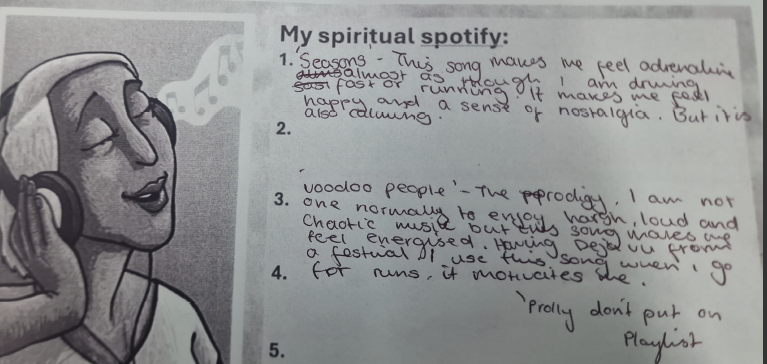 My spiritual spotify:
1. 'Seasons' - This song makes me feel adrenaline
almost as though I am driving
fast or running. It makes me feel
happy and a sense of nostalgia. But it is
also calming.
2.
3. voodoo people' - The prodigy. I am not
one normally to enjoy harsh, loud and
Chaotic music but this song makes me
feel energised. Having Deja vu from
a festival I use this song when i go
4. for runs, it motivates me.
'Prolly don't put on
Playlist
5.